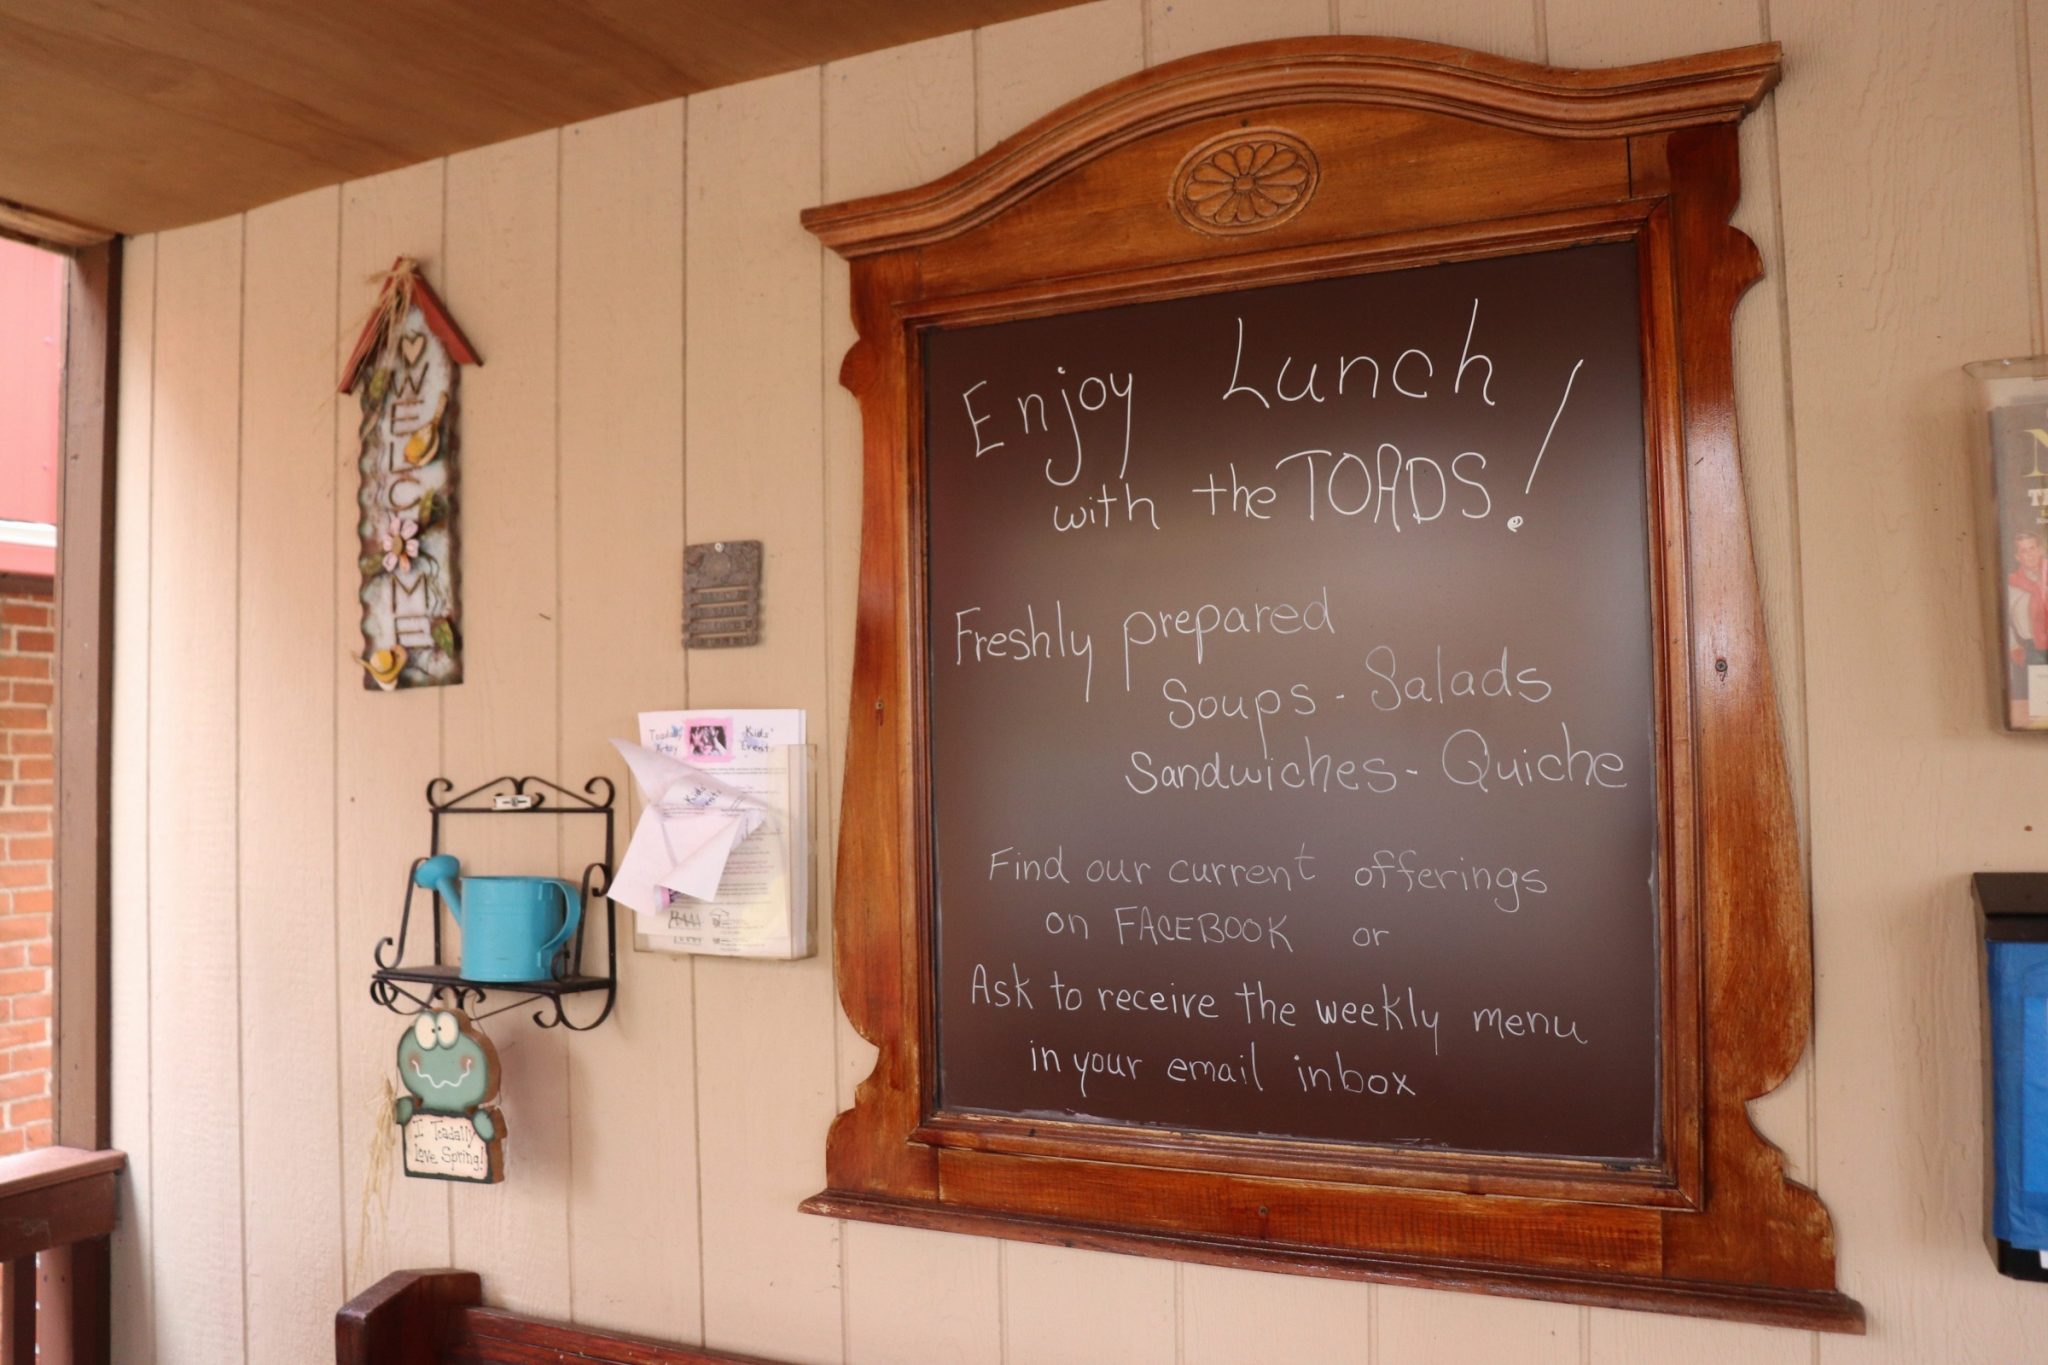 WELCOME
Toadally Kids'
Artsy Event
Kids'
I Toadally
Love Spring!
Enjoy Lunch
with the TOADS!
Freshly prepared
Soups - Salads
Sandwiches - Quiche
Find our current offerings
on FACEBOOK or
Ask to receive the weekly menu
in your email inbox